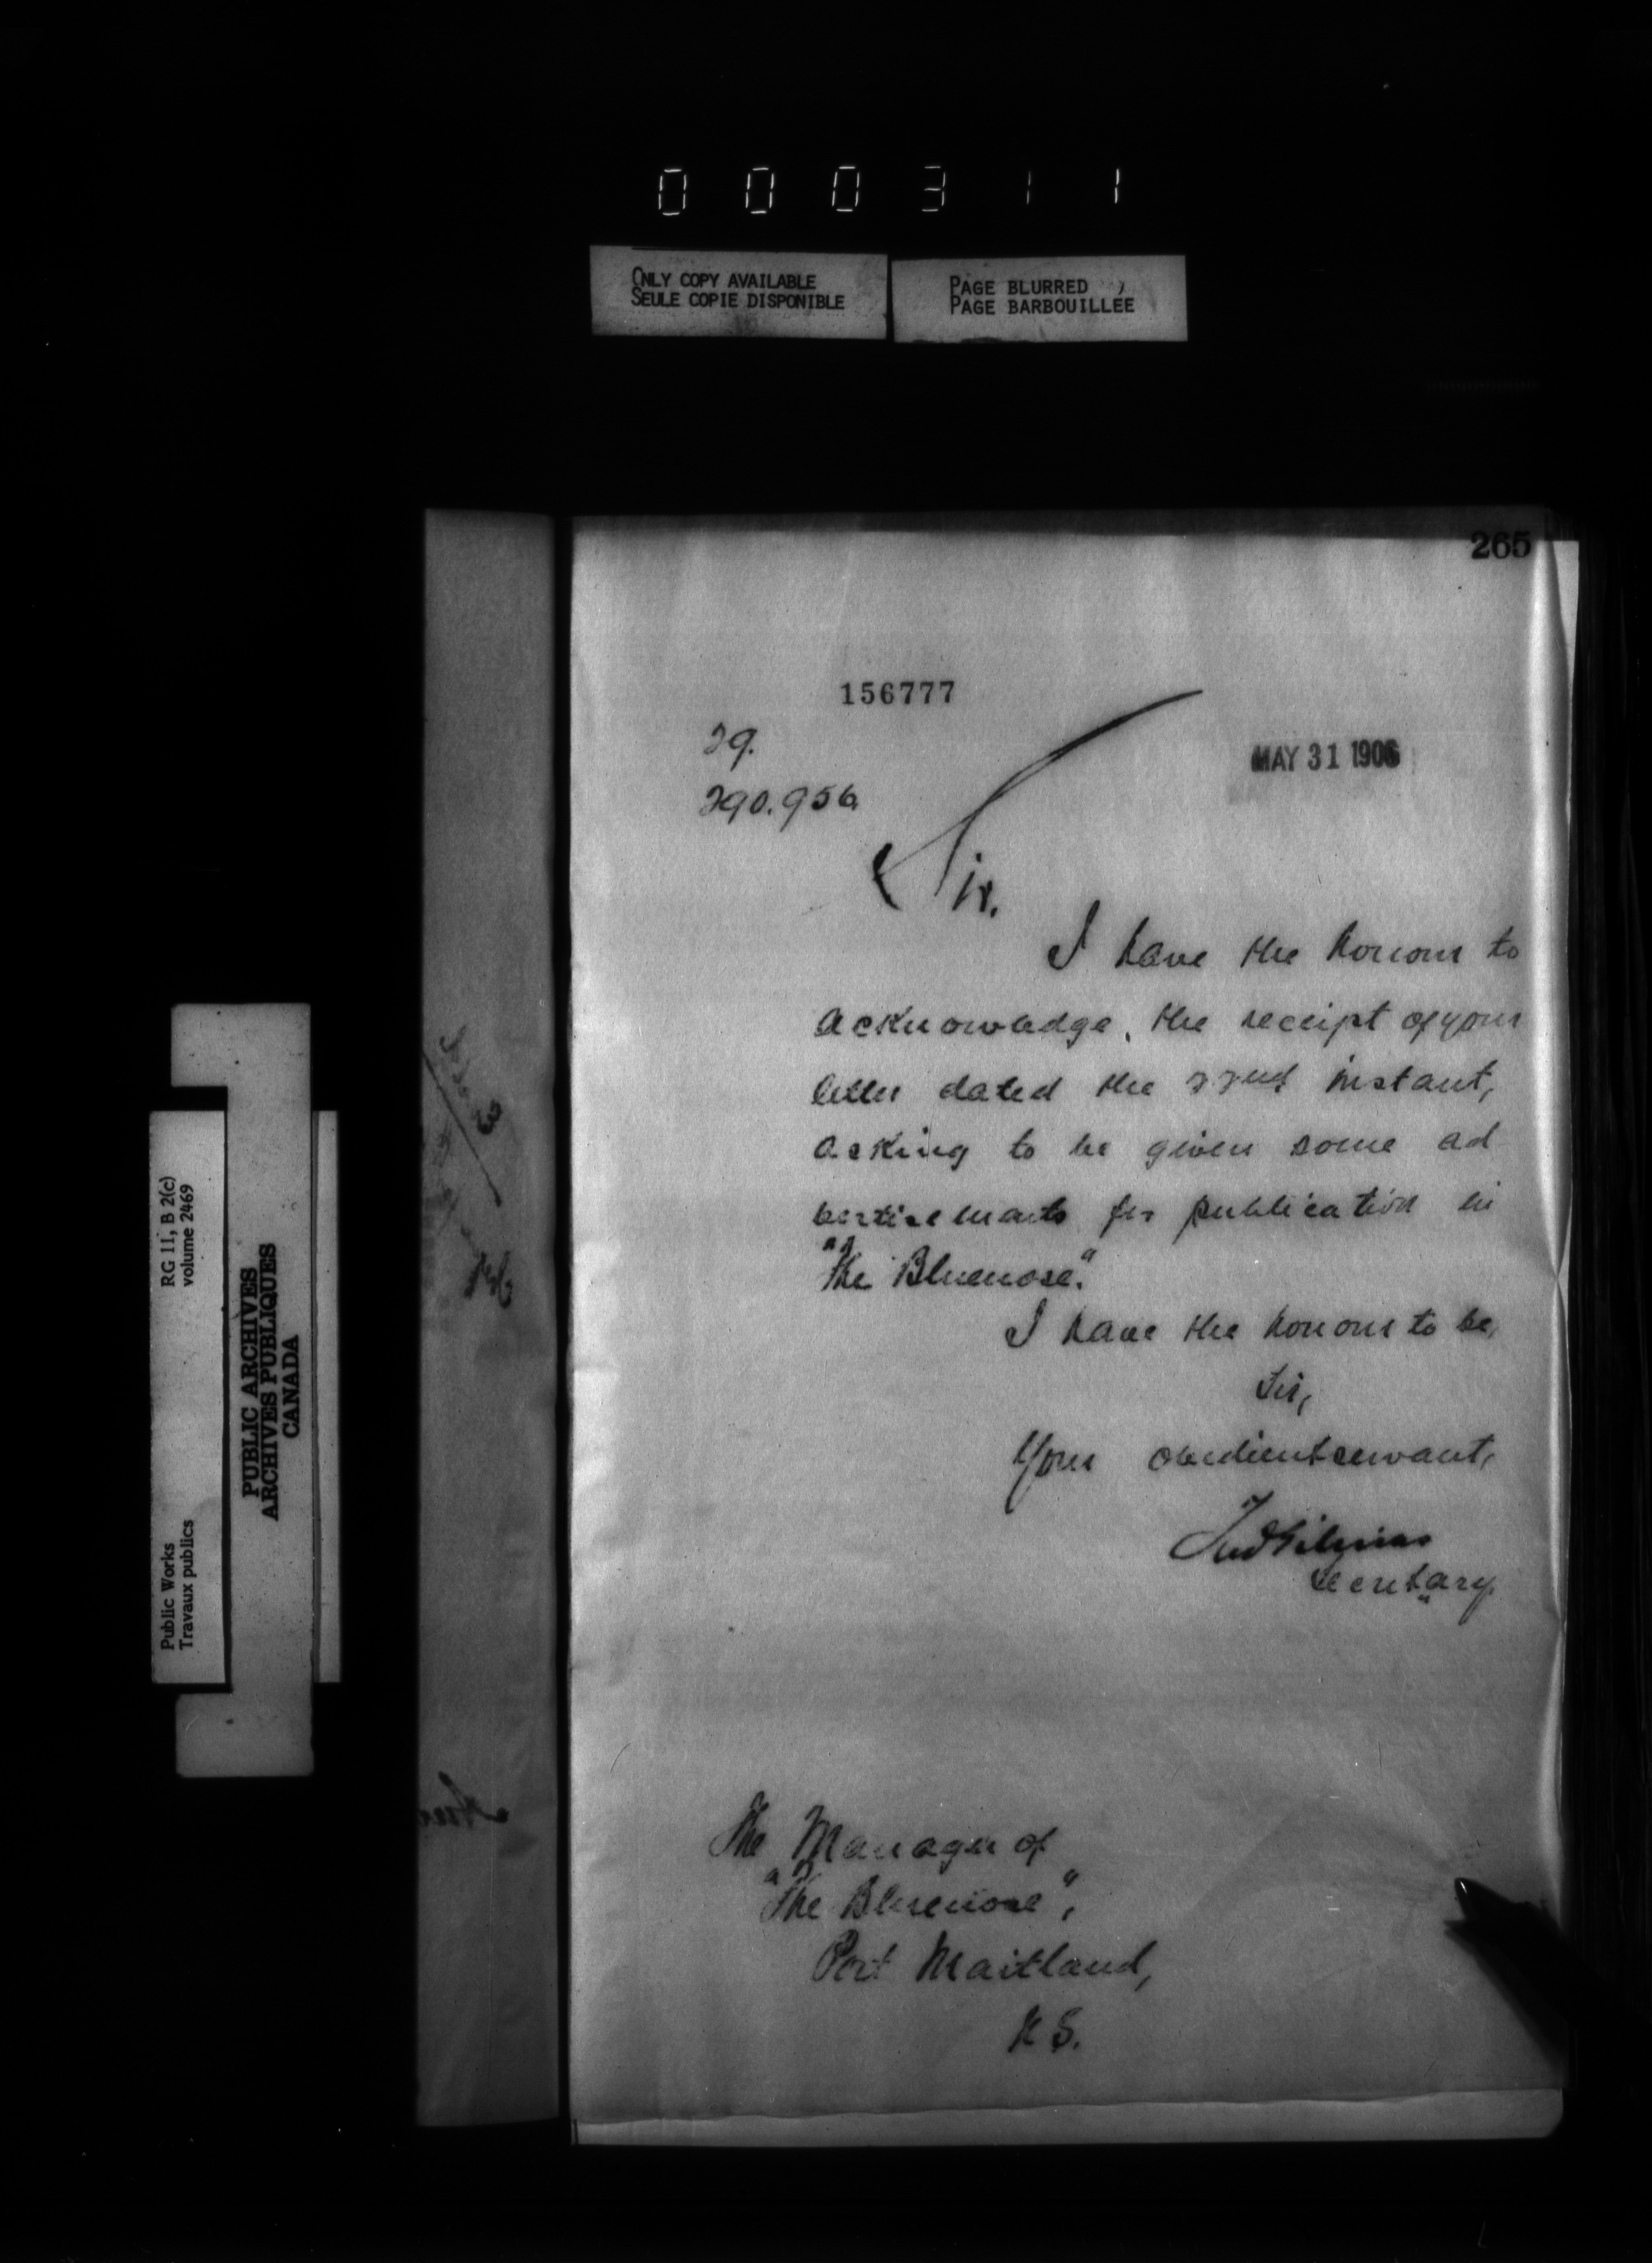 000311
ONLY COPY AVAILABLE
SEULE COPIE DISPONIBLE
PAGE BLURRED
PAGE BARBOUILLEE
RG 11, B 2(c)
volume 2469
PUBLIC ARCHIVES
ARCHIVES PUBLIQUES
CANADA
Public Works
Travaux publics
265
156777
29.
MAY 31 1906
290.956
Sir.
I have the honour to
acknowledge, the receipt of your
letter dated the 22nd instant,
asking to be given some ad
vertisements for publication in
"The Bluenose."
I have the honour to be,
Sir,
Your obedient servant,
Secretary
The Manager of
"The Bluenose",
Port Maitland,
N S.